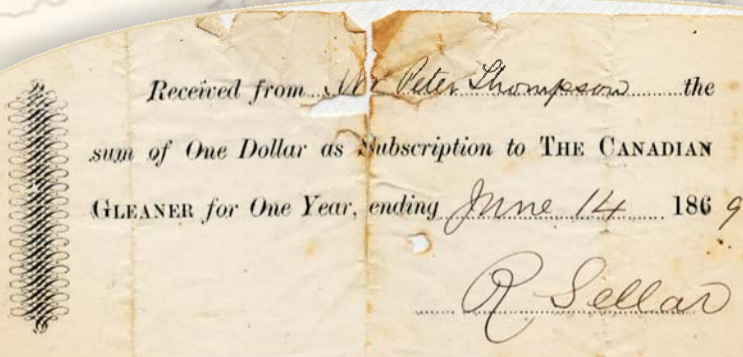 Received from Mr Peter Thompson the
sum of One Dollar as Subscription to THE CANADIAN
GLEANER for One Year, ending June 14 1869
R Sellar